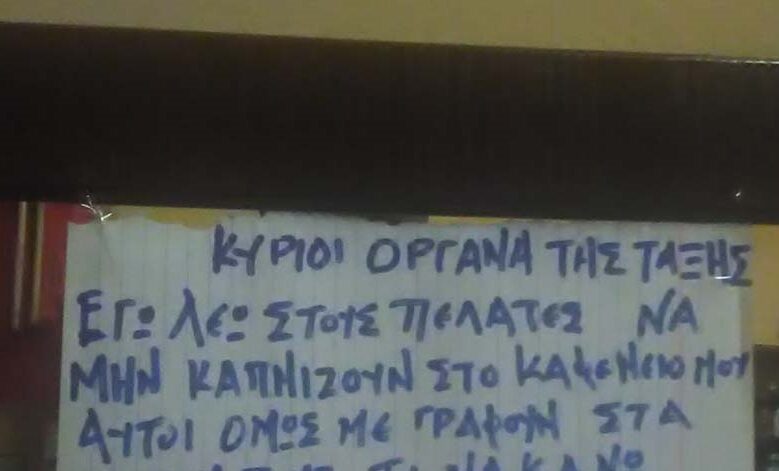 ΚΥΡΙΟΙ ΟΡΓΑΝΑ ΤΗΣ ΤΑΞΗΣ
ΕΓΩ ΛΕΩ ΣΤΟΥΣ ΠΕΛΑΤΕΣ ΝΑ
ΜΗΝ ΚΑΠΝΙΖΟΥΝ ΣΤΟ ΚΑΦΕΝΕΙΟ ΜΟΥ
ΑΥΤΟΙ ΟΜΩΣ ΜΕ ΓΡΑΦΟΥΝ ΣΤΑ
ΝΑ ΚΑΝΩ